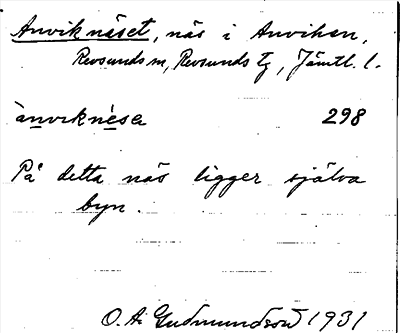 Anviknäset, näs i Anviken,
Revsunds sn, Revsunds tg, Jämtl. l.
ànviknése 298
På detta näs ligger själva
byn.
O. A. Gudmundsson 1931